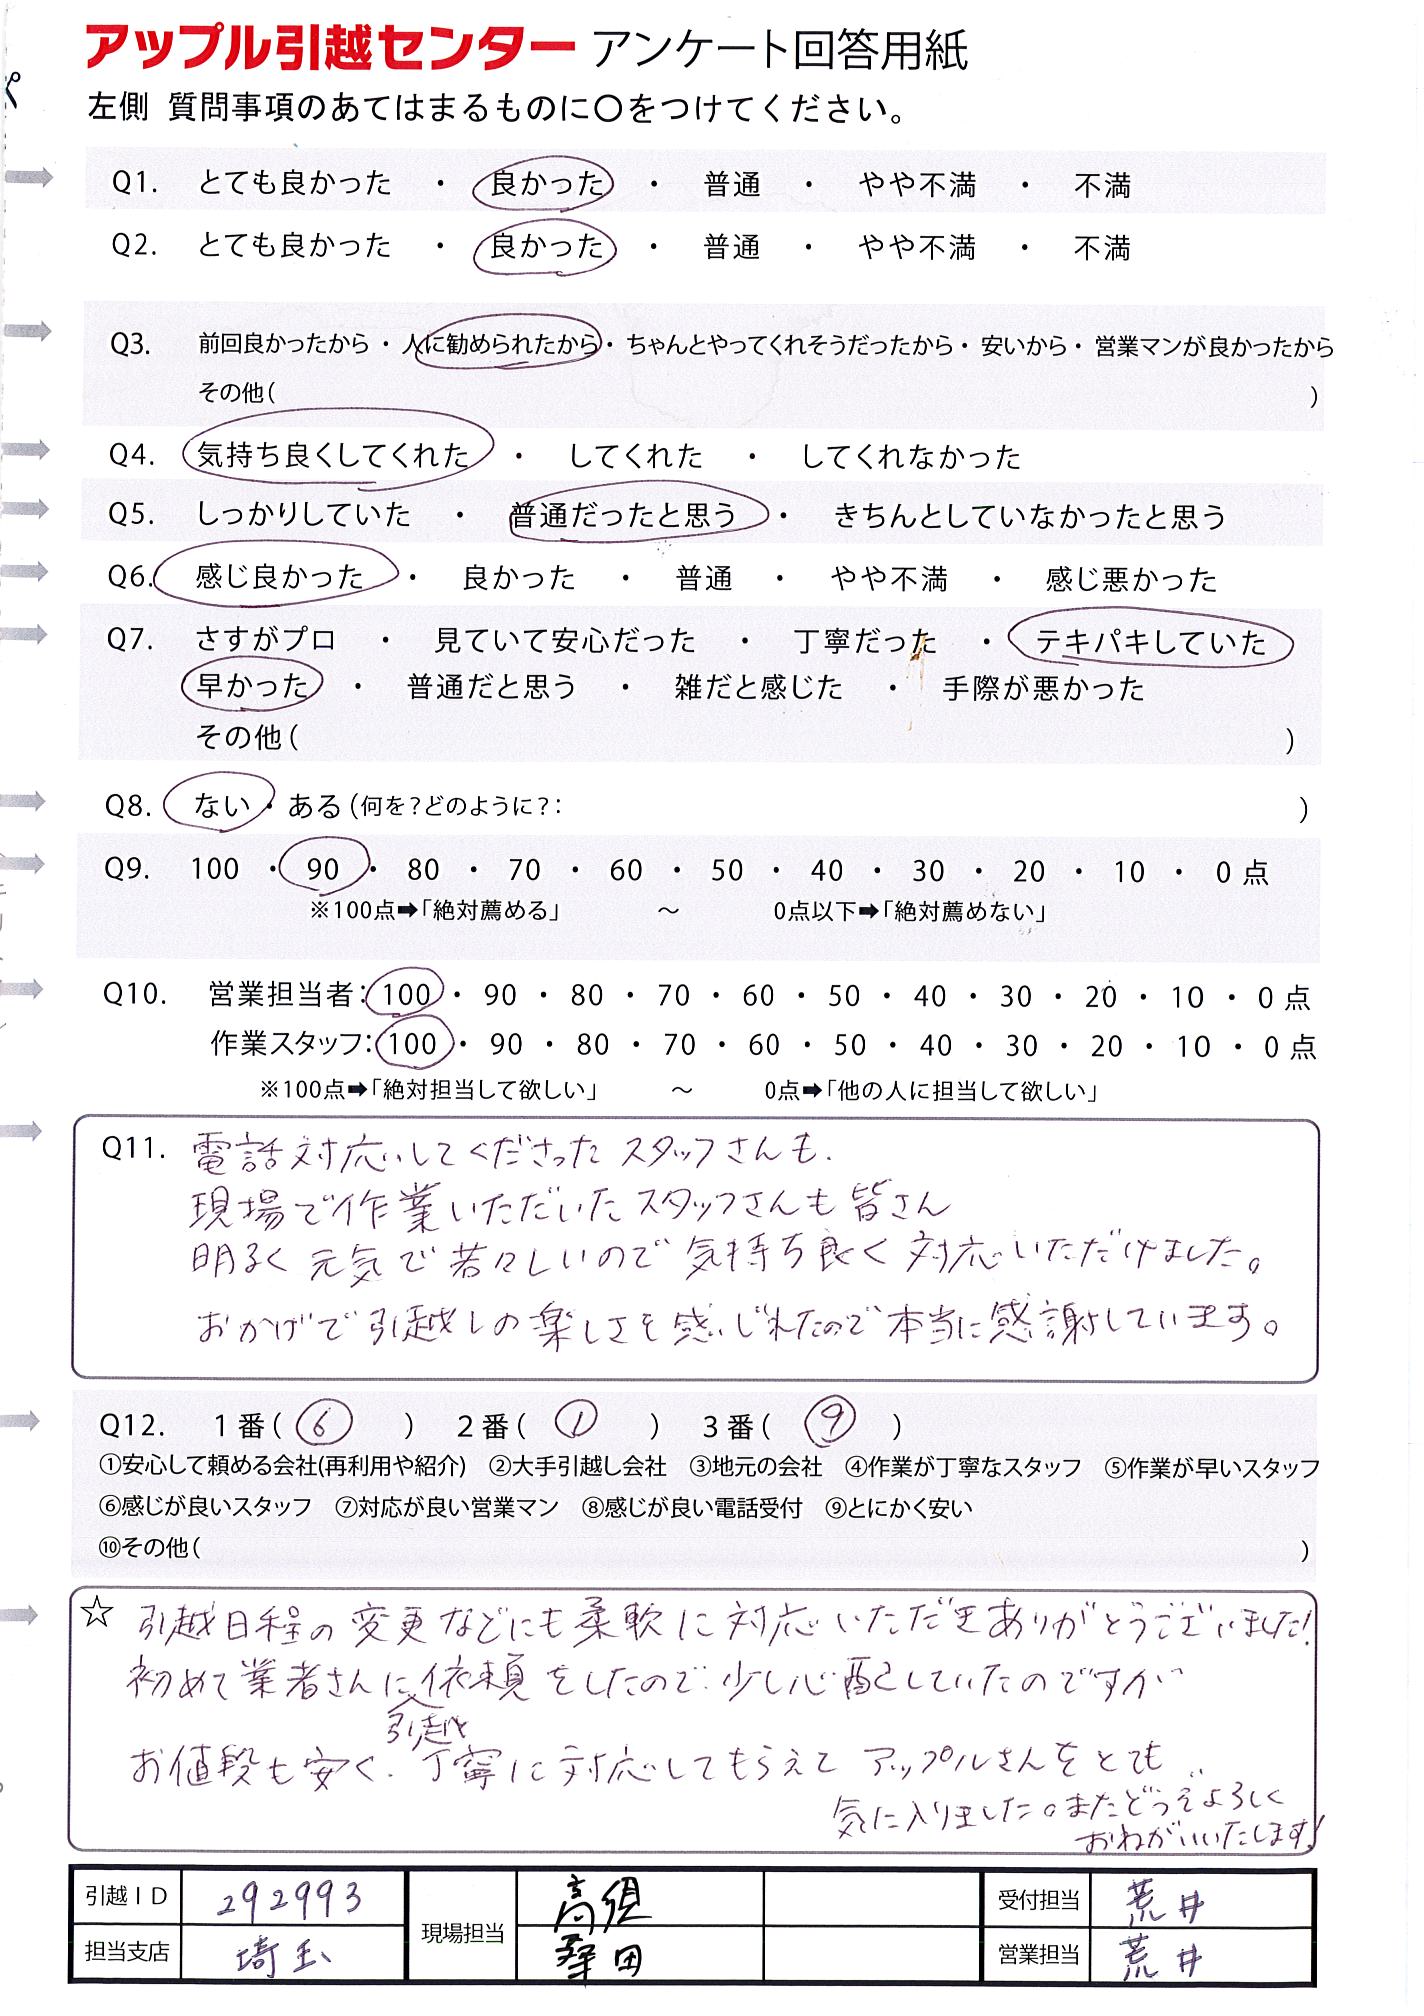 アップル引越センター アンケート回答用紙
左側 質問事項のあてはまるものに〇をつけてください。
Q1. とても良かった ・ 良かった ・ 普通 ・ やや不満 ・ 不満
Q2. とても良かった ・ 良かった ・ 普通 ・ やや不満 ・ 不満
Q3. 前回良かったから・人に勧められたから・ちゃんとやってくれそうだったから・安いから・営業マンが良かったから
その他( )
Q4. 気持ち良くしてくれた ・ してくれた ・ してくれなかった
Q5. しっかりしていた ・ 普通だったと思う ・ きちんとしていなかったと思う
Q6. 感じ良かった ・ 良かった ・ 普通 ・ やや不満 ・ 感じ悪かった
Q7. さすがプロ ・ 見ていて安心だった ・ 丁寧だった ・ テキパキしていた
早かった ・ 普通だと思う ・ 雑だと感じた ・ 手際が悪かった
その他( )
Q8. ない・ある(何を?どのように?: )
Q9. 100 ・ 90 ・ 80 ・ 70 ・ 60 ・ 50 ・ 40 ・ 30 ・ 20 ・ 10 ・ 0点
※100点➡「絶対薦める」 〜 0点以下➡「絶対薦めない」
Q10. 営業担当者:100・90・80・70・60・50・40・30・20・10・0点
作業スタッフ:100・90・80・70・60・50・40・30・20・10・0点
※100点➡「絶対担当して欲しい」 〜 0点➡「他の人に担当して欲しい」
Q11. 電話対応してくださったスタッフさんも、
現場で作業いただいたスタッフさんも皆さん
明るく元気で若々しいので気持ち良く対応いただけました。
おかげで引越しの楽しさを感じれたので本当に感謝しています。
Q12. 1番(⑥) 2番(①) 3番(⑨)
①安心して頼める会社(再利用や紹介) ②大手引越し会社 ③地元の会社 ④作業が丁寧なスタッフ ⑤作業が早いスタッフ
⑥感じが良いスタッフ ⑦対応が良い営業マン ⑧感じが良い電話受付 ⑨とにかく安い
⑩その他( )
☆ 引越日程の変更などにも柔軟に対応いただきありがとうございました!
初めて業者さんに依頼をしたので少し心配していたのですが
引越
お値段も安く、丁寧に対応してもらえてアップルさんをとても
気に入りました。またどうぞよろしく
おねがいいたします!
引越ID 292993 現場担当 高須 受付担当 荒井
担当支店 埼玉 桑田 営業担当 荒井